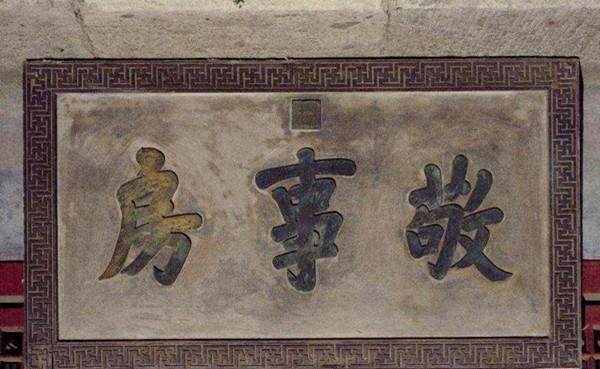 敬事房